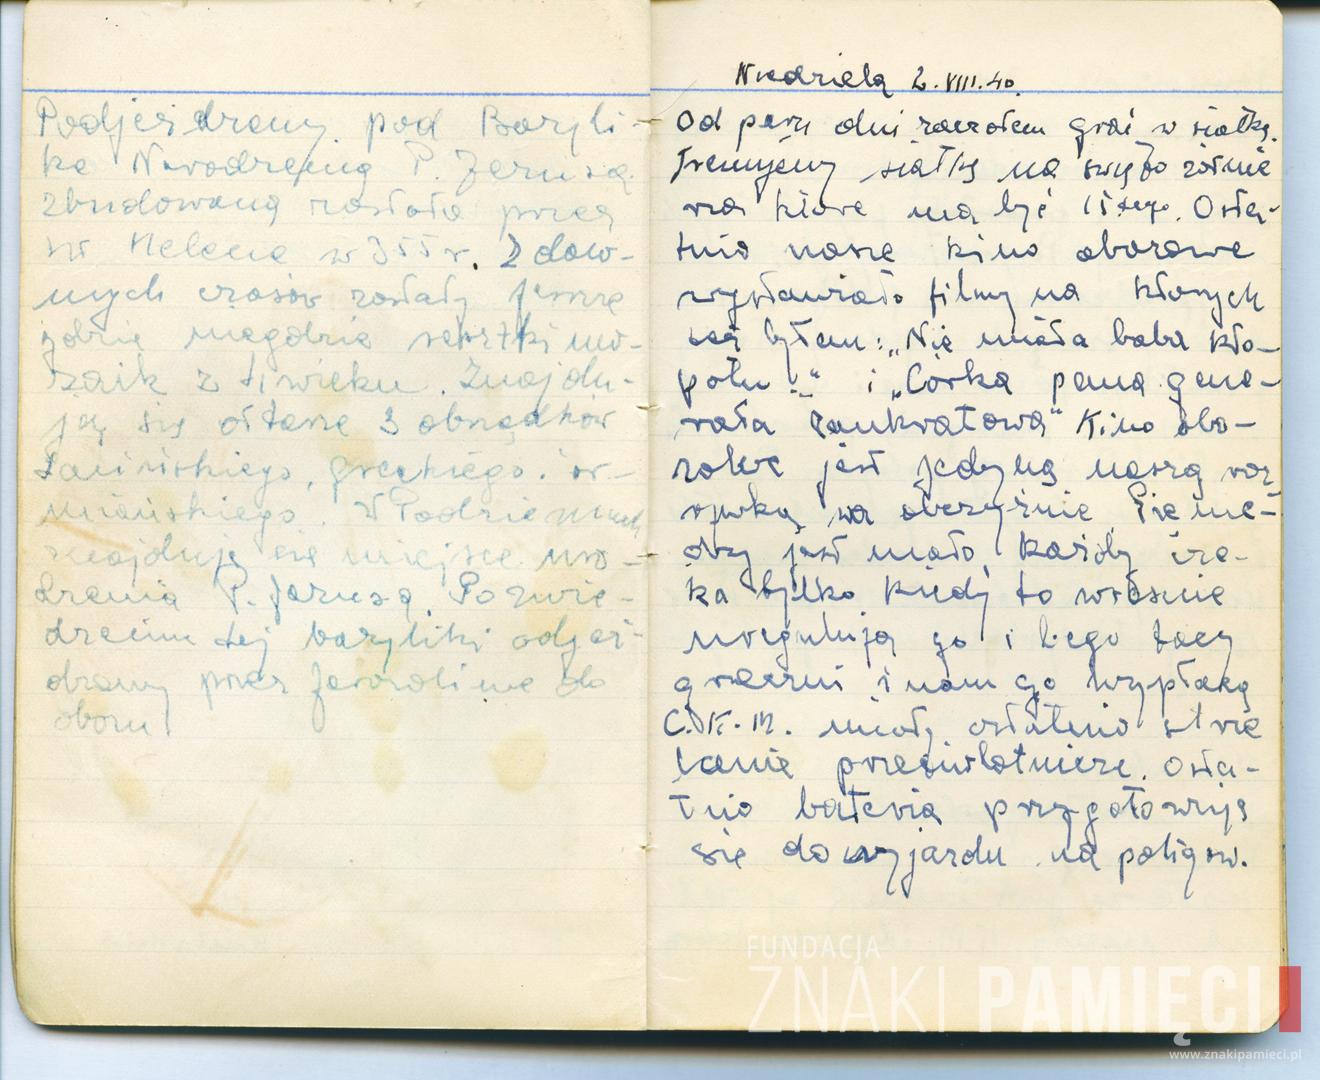 Podjeżdżamy pod Bazyli-
kę Narodzenia P. Jezusa
zbudowaną została przez
św Helenę w 355 r. Z daw-
nych czasów zostały jeszcze
gdzie niegdzie resztki mo-
zaik z 4 wieku. Znajdu-
ją się ołtarze 3 obrządków
Łacińskiego, greckiego i or-
miańskiego. W Podziemiach
znajduje się miejsce uro-
dzenia P. Jezusa. Po zwie-
dzeniu tej bazyliki odjeż-
dżamy przez Jerozolimę do
obozu
Niedziela 2.VIII.40.
Od paru dni zacząłem grać w siatkę.
Trenujemy siatkę na święto żołnie
rza które ma być 15 tego. Osta-
tnio nasze kino obozowe
wystawiało filmy na których
też byłem: „Nie miała baba kło-
potu" i „Córka pana gene-
rała Pankratowa" Kino obo-
zowe jest jedyną naszą roz
rywką na obczyźnie Pienię-
dzy jest mało, każdy cze-
ka tylko kiedy to właśnie
uregulują go i tego tacy
grzeczni i nam go wypłacą
C.K.M. miały ostatnio strze
lanie przeciwlotnicze. Osta-
tnio bateria przygotowuje
się do wyjazdu na poligon.
FUNDACJA
ZNAKI PAMIĘCI
www.znakipamieci.pl